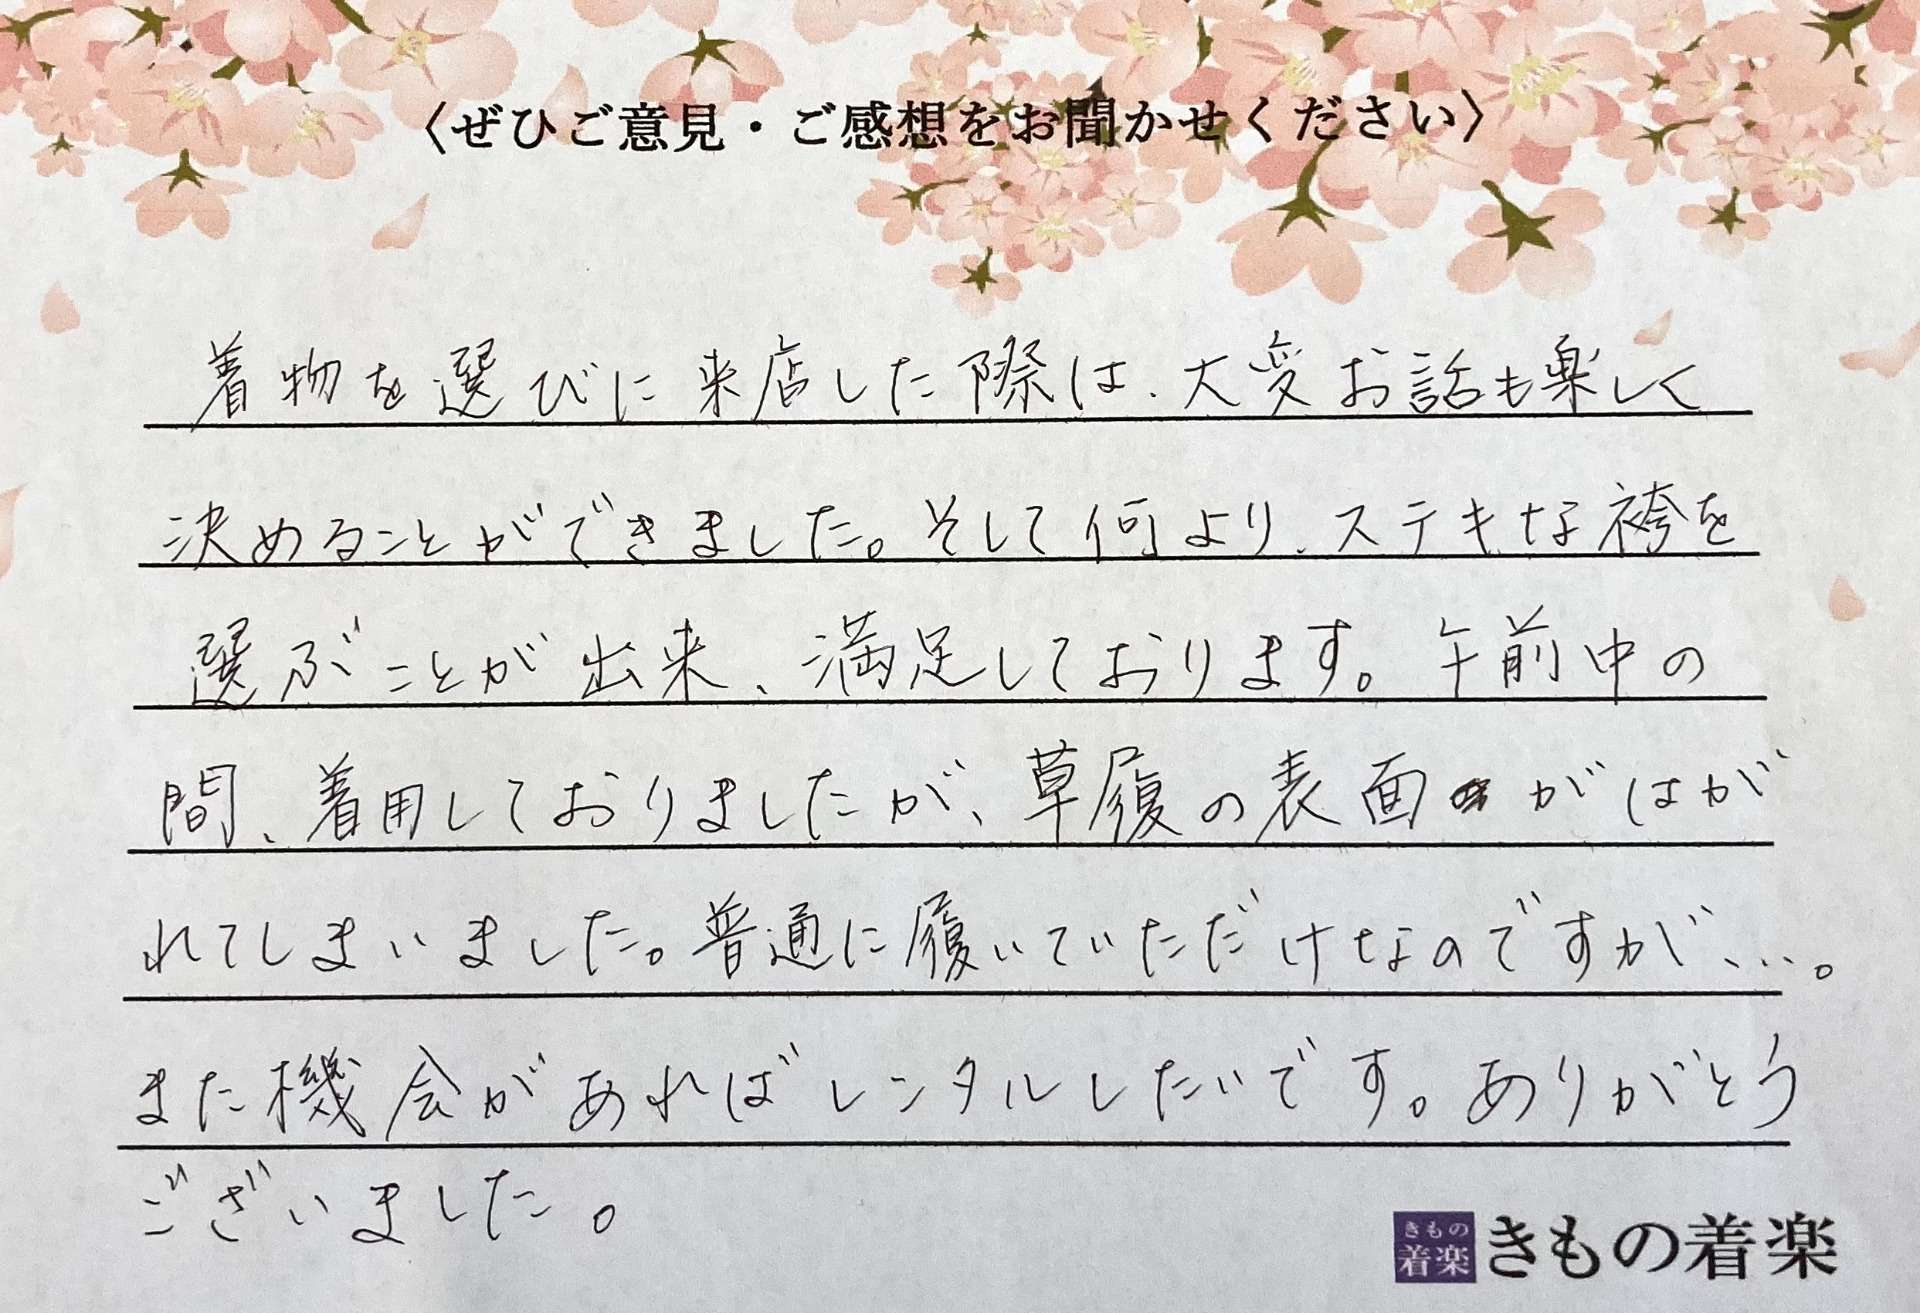 〈ぜひご意見・ご感想をお聞かせください〉
着物を選びに来店した際は、大変お話も楽しく
決めることができました。そして何より、ステキな袴を
選ぶことが出来、満足しております。午前中の
間、着用しておりましたが、草履の表面がはが
れてしまいました。普通に履いていただけなのですが…。
また機会があればレンタルしたいです。ありがとう
ございました。
きもの
着楽
きもの着楽